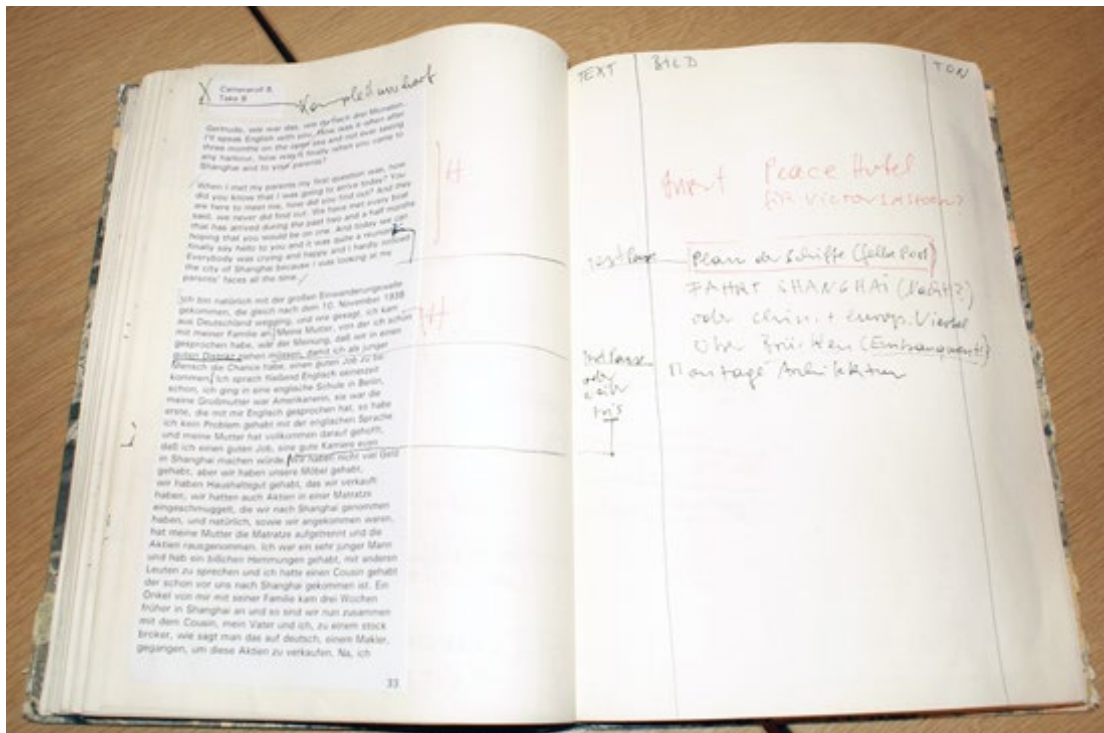 X Cameraroll 8,
Take 8
Komplett unscharf
Gertrude, wie war das, wie du nach drei Monaten,
I'll speak English with you, How was it when after
three months on the open sea and not ever seeing
any harbour, how was it finally when you came to
Shanghai and to your parents?
When I met my parents my first question was, how
did you know that I was going to arrive today? You
are here to meet me, how did you find out? And they
said, we never did find out. We have met every boat
that has arrived during the past two and a half months
hoping that you would be on one. And today we can
finally say hello to you and it was quite a reunion.
Everybody was crying and happy and I hardly noticed
the city of Shanghai because I was looking at my
parents' faces all the time.
Ich bin natürlich mit der großen Einwanderungswelle
gekommen, die gleich nach dem 10. November 1938
aus Deutschland wegging, und wie gesagt, ich kam
mit meiner Familie an. Meine Mutter, von der ich schon
gesprochen habe, war der Meinung, daß wir in einen
guten Distrikt ziehen müssen, damit ich als junger
Mensch die Chance habe, einen guten Job zu be-
kommen. Ich sprach fließend Englisch seinerzeit
schon, ich ging in eine englische Schule in Berlin,
meine Großmutter war Amerikanerin, sie war die
erste, die mit mir Englisch gesprochen hat, so habe
ich kein Problem gehabt mit der englischen Sprache
und meine Mutter hat vollkommen darauf gehofft,
daß ich einen guten Job, eine gute Karriere eben
in Shanghai machen würde. Wir haben nicht viel Geld
gehabt, aber wir haben unsere Möbel gehabt,
wir haben Haushaltsgut gehabt, das wir verkauft
haben, wir hatten auch Aktien in einer Matratze
eingeschmuggelt, die wir nach Shanghai genommen
haben, und natürlich, sowie wir angekommen waren,
hat meine Mutter die Matratze aufgetrennt und die
Aktien rausgenommen. Ich war ein sehr junger Mann
und hab ein bißchen Hemmungen gehabt, mit anderen
Leuten zu sprechen und ich hatte einen Cousin gehabt
der schon vor uns nach Shanghai gekommen ist. Ein
Onkel von mir mit seiner Familie kam drei Wochen
früher in Shanghai an und so sind wir nun zusammen
mit dem Cousin, mein Vater und ich, zu einem stock
broker, wie sagt man das auf deutsch, einem Makler,
gegangen, um diese Aktien zu verkaufen. Na, ich
33
TEXT BILD TON
Insert Peace Hotel
für VICTOR SASSOON?
Plan der Schiffe (gelbe Post)
FAHRT SHANGHAI (Nacht?)
oder chin. + europ. Viertel
über Brücken (Eintrangment!)
Montage Architektur
oder